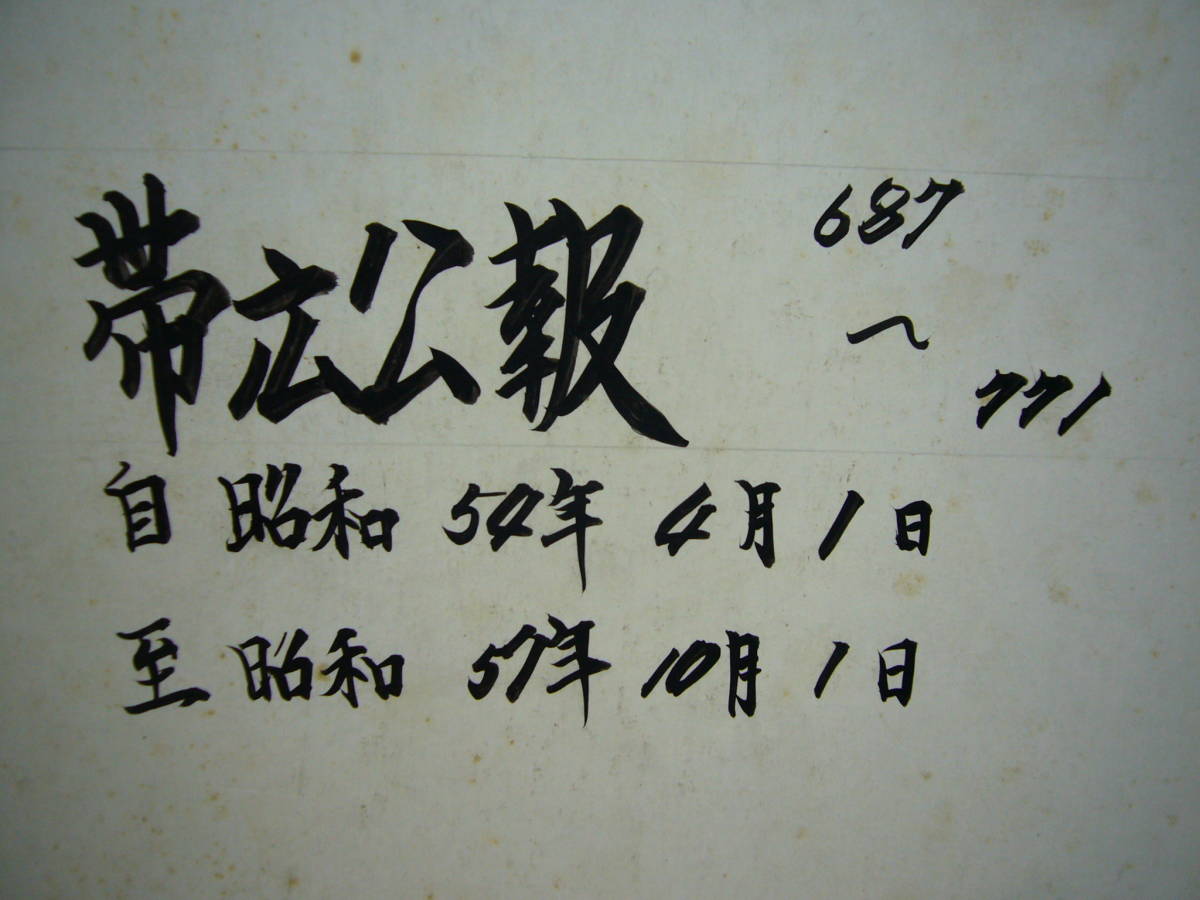 帯広公報
687
〜
771
自 昭和 54年 4月 1日
至 昭和 57年 10月 1日